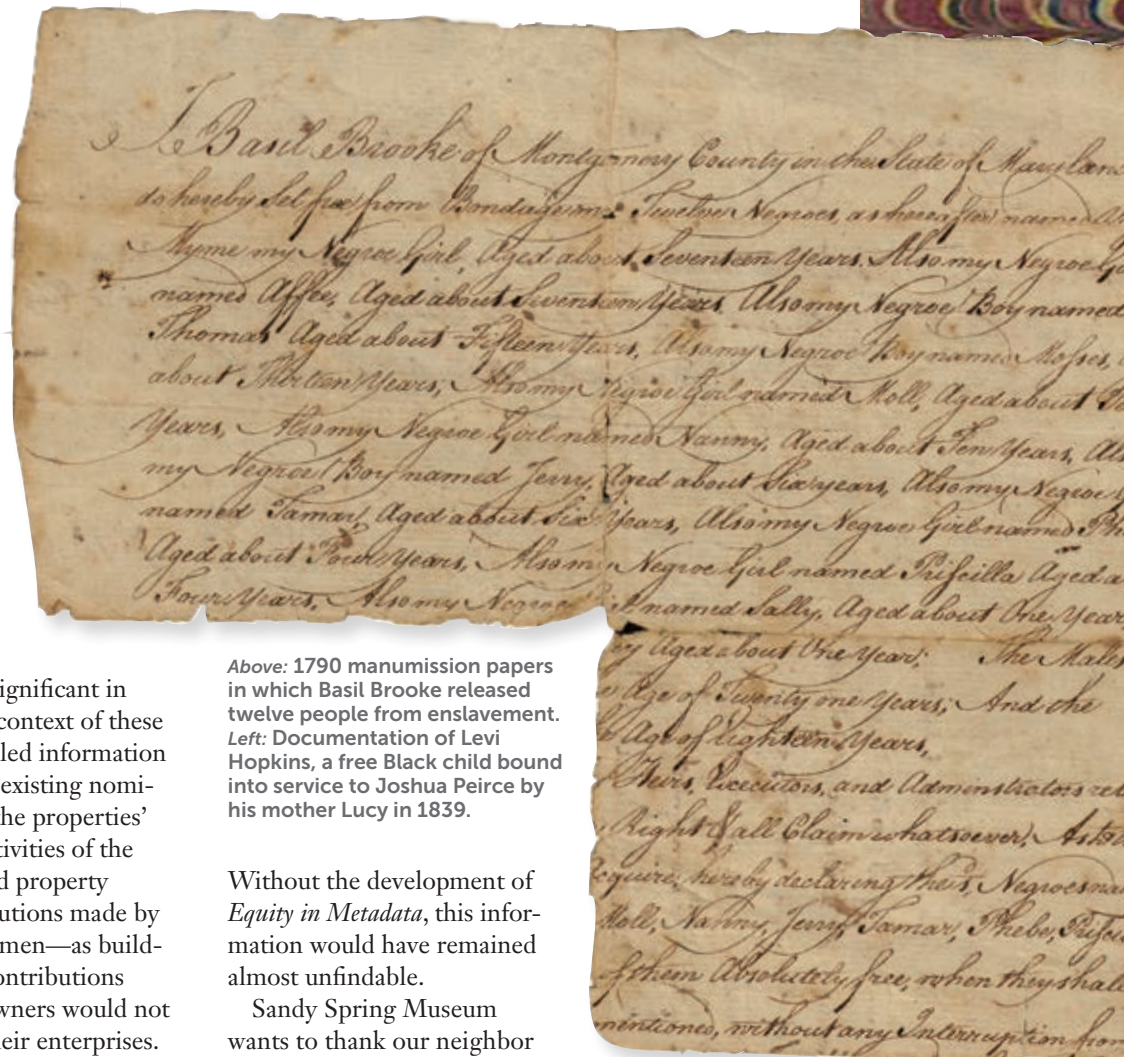 I Basil Brooke of Montgomery County in the State of
do hereby Set free from Bondage Twelve Negroes, as hereafter named
Negroe Girl, Aged about Seventeen Years. Also my Negroe
named Affee, Aged about Years Also my Negroe Boy named
Thomas Aged about Fifteen Years, Also my Negroe Boy named Mosses,
about Thirteen Years, Also my Negroe Girl named Moll, Aged about
Years, Also my Negroe Girl named Nanny, Aged about Ten Years,
my Negroe Boy named Jerry, Aged about Six years, Also my Negroe
named Tamar, Aged about Six Years, Also my Negroe Girl named
Aged about Four Years, Also my Negroe Girl named Priscilla Aged
Four Years, Also my Negroe named Sally, Aged about One Year
Aged about One Year; The Males
Age of Twenty one Years; And the
Age of Eighteen Years,
Heirs, Executors, and Adminstrators
Right & all Claim whatsoever,
hereby declaring Negroes
Moll, Nanny, Jerry, Tamar, Phebe,
of them Absolutely free, when they shall
mentioned, without any Interruption from
ignificant in
context of these
led information
existing nomi-
he properties'
tivities of the
d property
utions made by
men—as build-
ontributions
wners would not
eir enterprises.
Above: 1790 manumission papers
in which Basil Brooke released
twelve people from enslavement.
Left: Documentation of Levi
Hopkins, a free Black child bound
into service to Joshua Peirce by
his mother Lucy in 1839.
Without the development of
Equity in Metadata, this infor-
mation would have remained
almost unfindable.
Sandy Spring Museum
wants to thank our neighbor